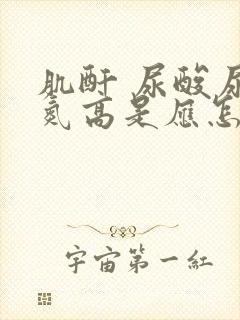 肌酐 尿酸尿
氮高是应怎
宇宙第一红